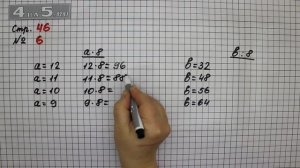 4 на 5
Стр. 46
№ 6
a · 8
b : 8
a = 12 12 · 8 = 96 b = 32
a = 11 11 · 8 = 88 b = 48
a = 10 10 · 8 = b = 56
a = 9 9 · 8 = b = 64